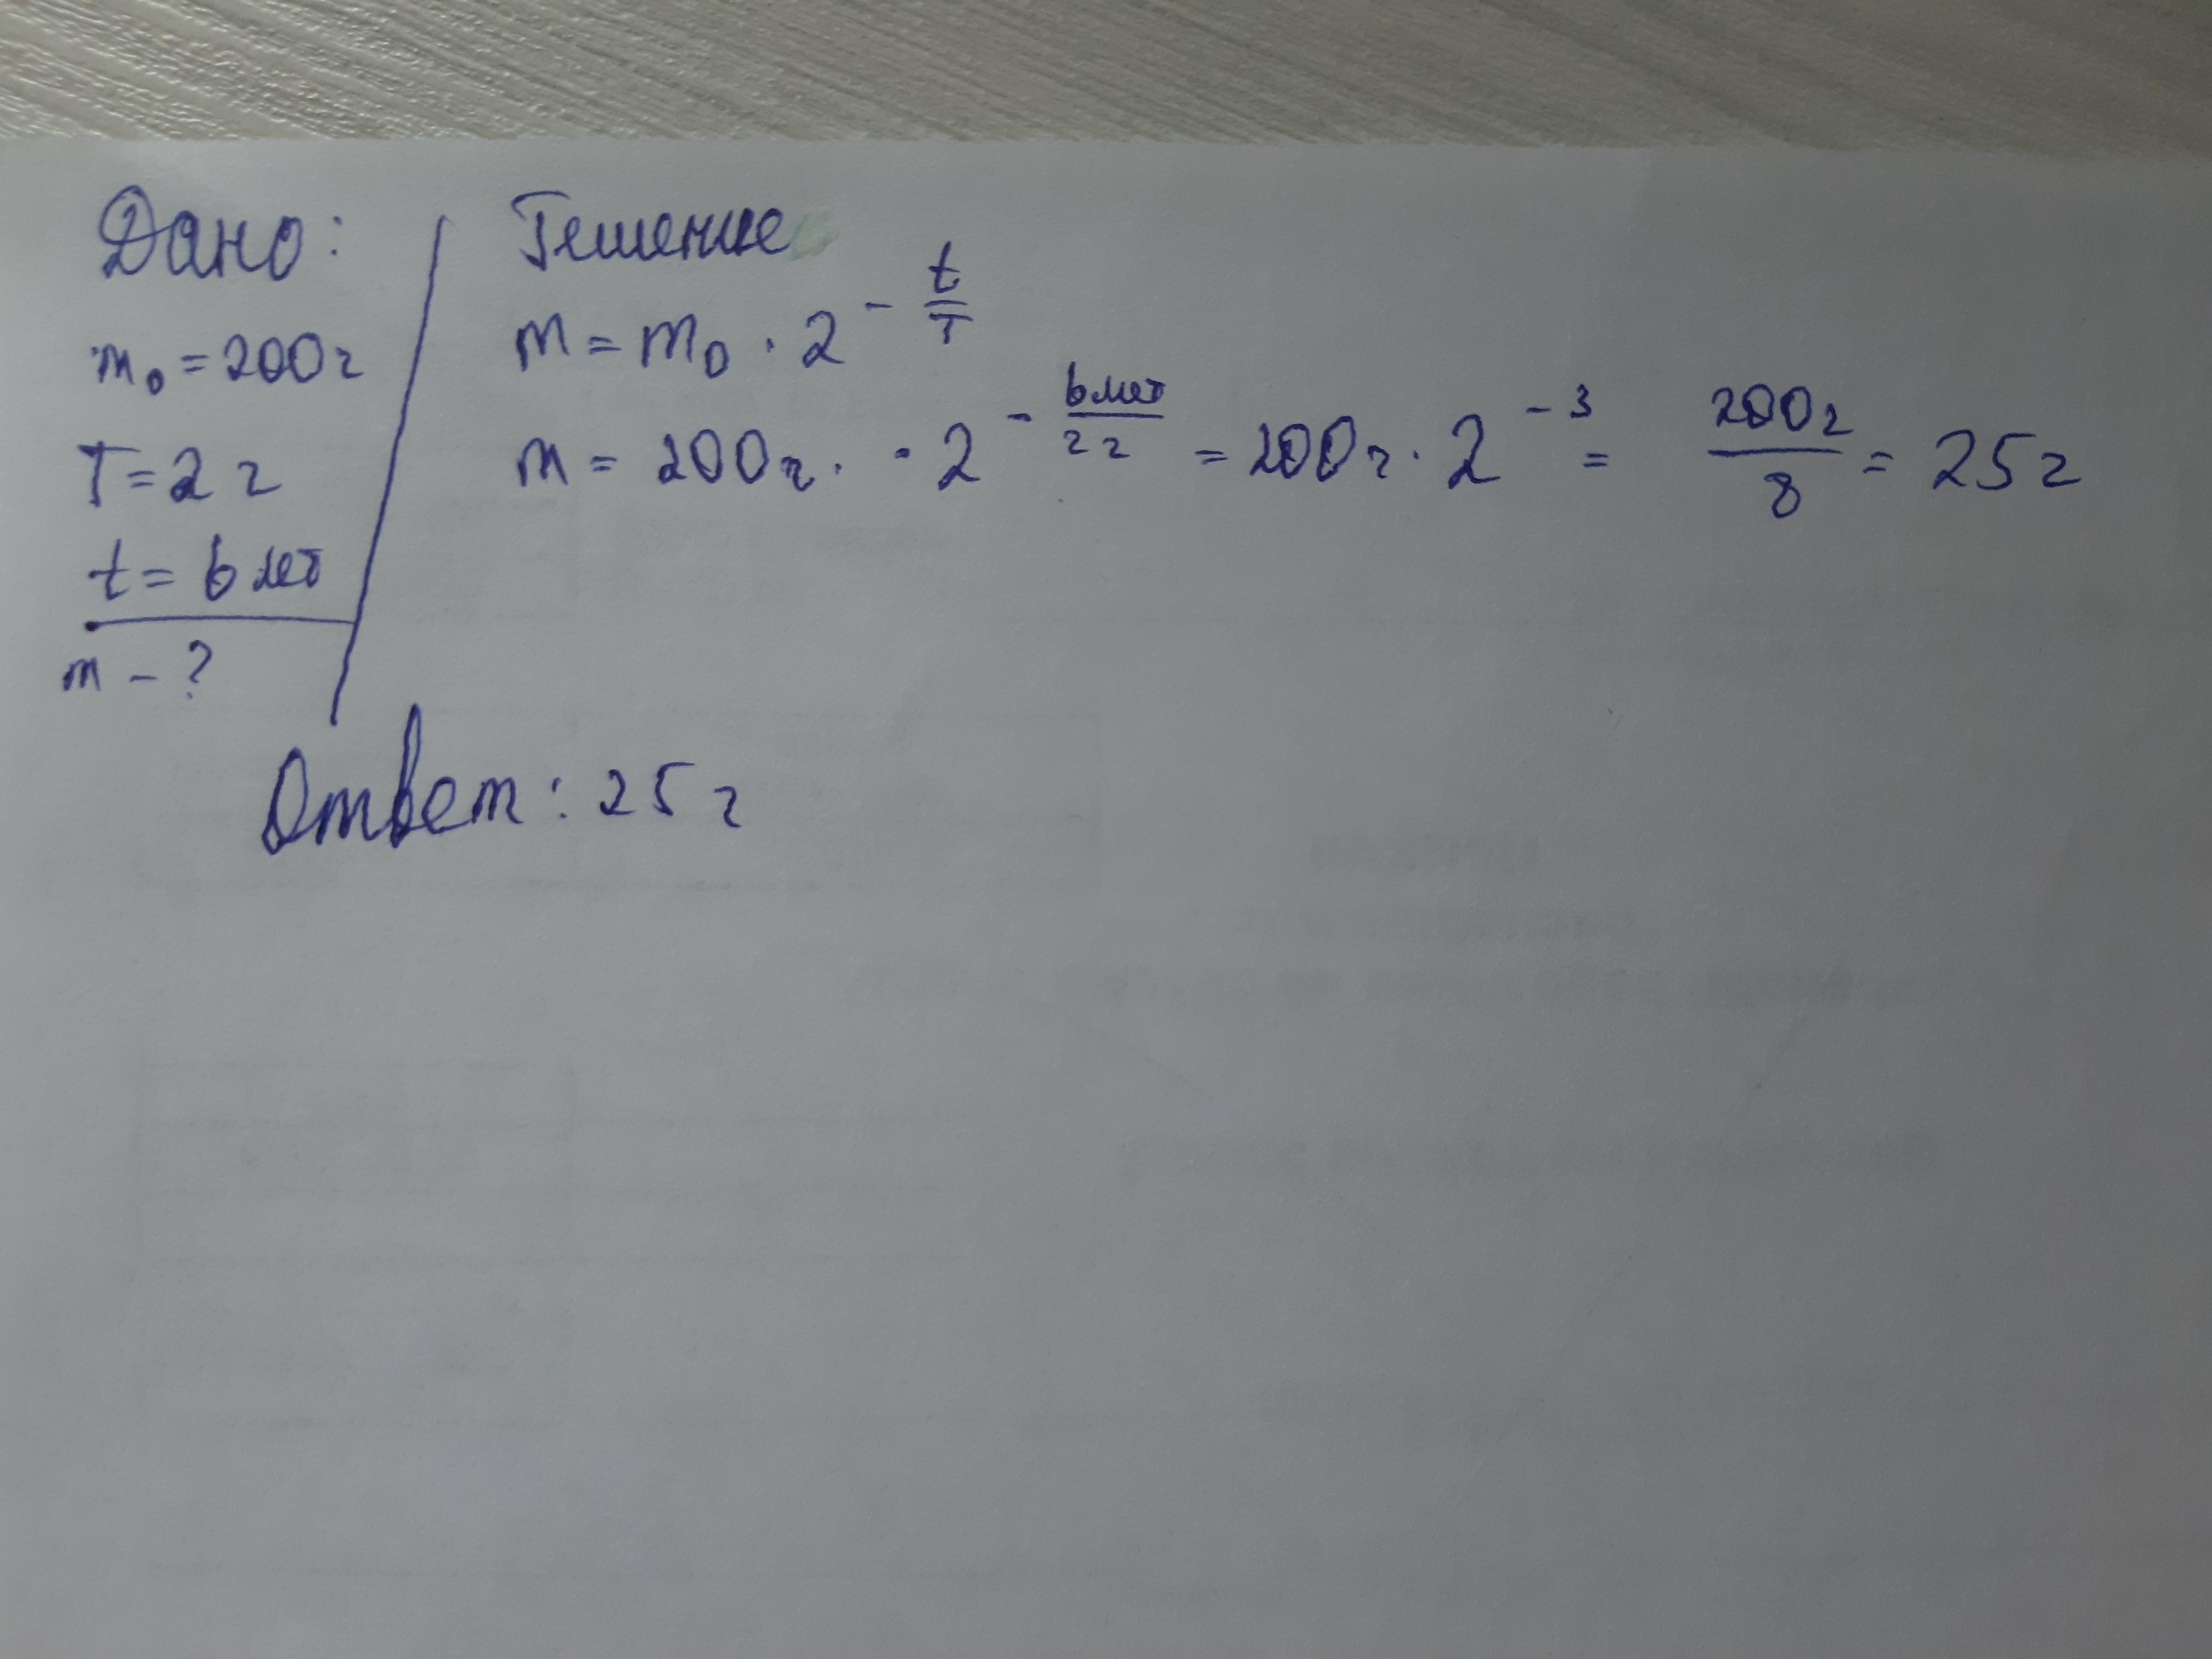 Дано:
m₀ = 200 г
T = 2 г
t = 6 лет
m - ?
Решение
m = m₀ · 2^(- t/T)
m = 200 г · · 2^(- 6 лет/2 г) = 200 г · 2^(-3) = 200 г/8 = 25 г
Ответ: 25 г